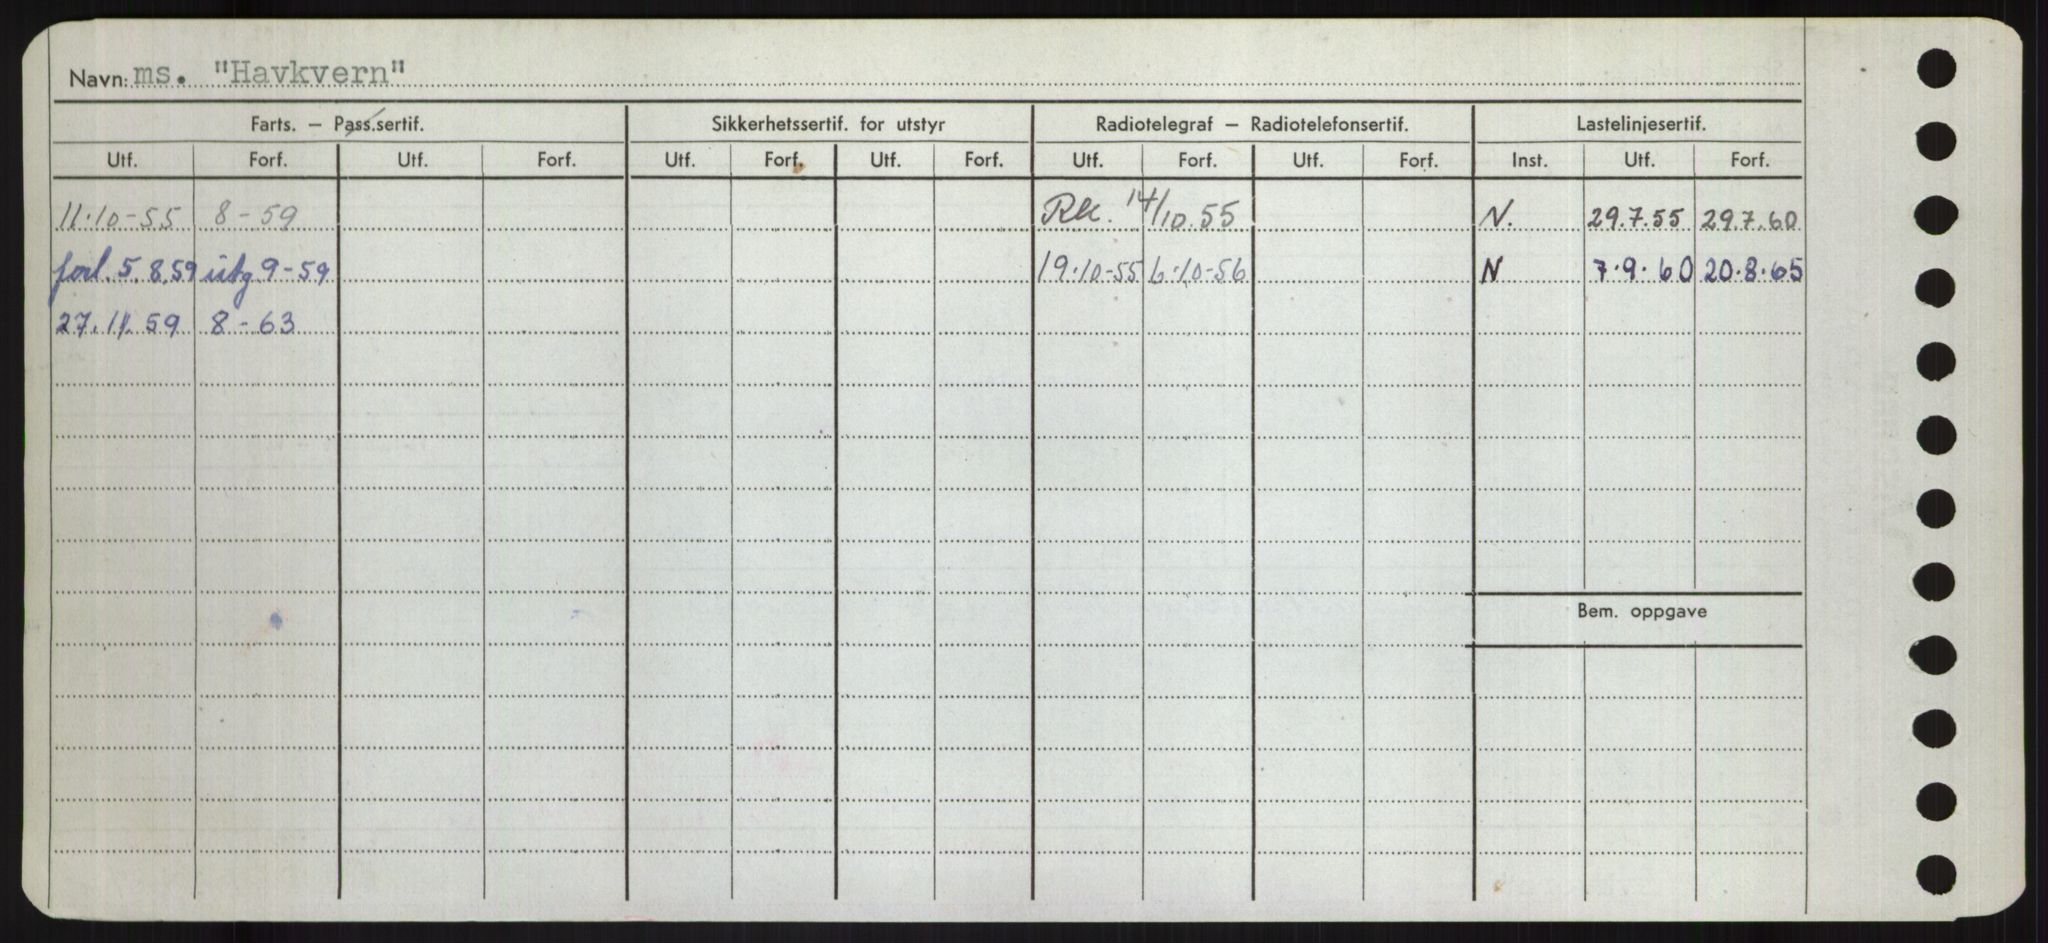 Navn: ms. "Havkvern"
Farts. — Pass.sertif. Sikkerhetssertif. for utstyr Radiotelegraf — Radiotelefonsertif. Lastelinjesertif.
Utf. Forf. Utf. Forf. Utf. Forf. Utf. Forf. Utf. Forf. Utf. Forf. Inst. Utf. Forf.
11.10-55 8-59 Rk. 14/10.55 N. 29.7.55 29.7.60
forl. 5.8.59 utg 9-59 19.10-55 6.10-56 N 7.9.60 20.8.65
27.11.59 8-63
Bem. oppgave